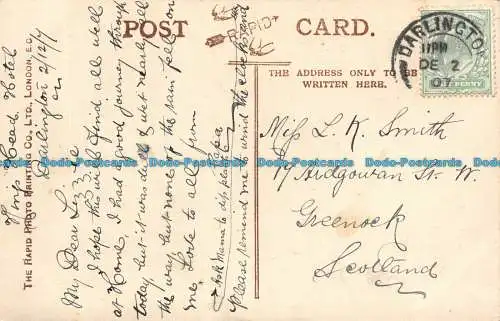 POST CARD.
RAPID
THE ADDRESS ONLY TO BE
WRITTEN HERE.
DARLINGTON
11 PM
DE 2
07
PENNY
THE RAPID PHOTO PRINTING CO., LTD., LONDON, E.C.
Kings Head Hotel
Darlington 2/12/7
My Dear Lizzie
I hope this will find all well
at Home. I had a good journey through
today but it was dull & wet nearly all
the way but none of the rain fell on
me. Love to all from
Papa
Ask Mama to
Please remind me to wind the clock and
Miss L. K. Smith
9 Ardgowan St. W.
Greenock
Scotland
Dodo-Postcards Dodo-Postcards Dodo-Postcards Dodo-Postcards Dodo-Postcards